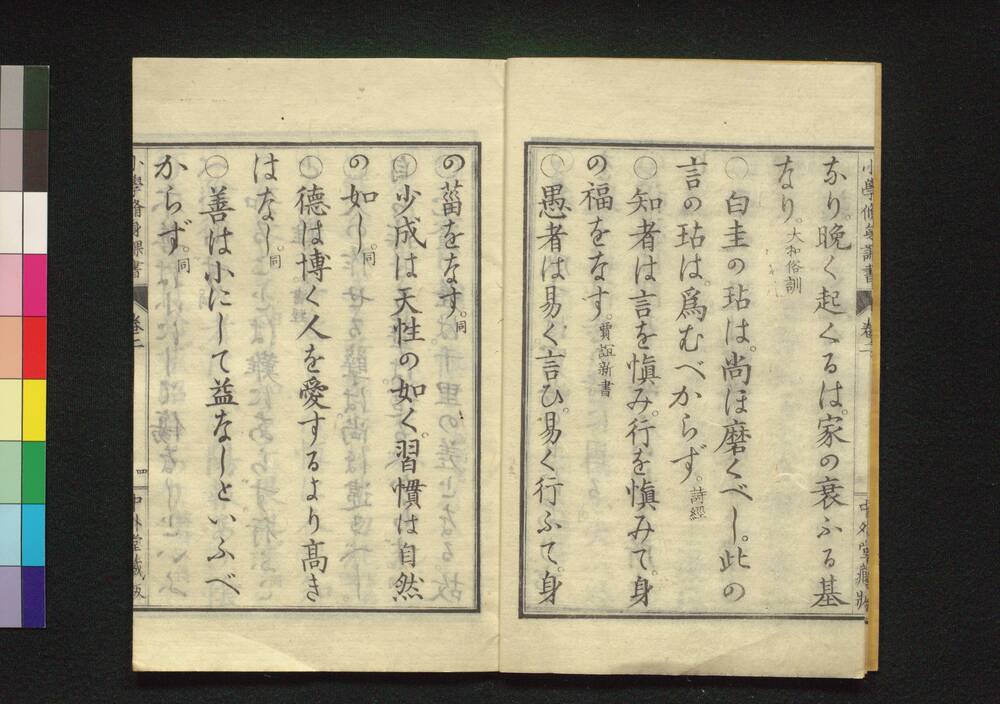 なり。晩く起くるは。家の衰ふる基
なり。大和俗訓
○白圭の玷は。尚ほ磨くべし。此の
言の玷は。爲むべからず。詩經
○知者は言を愼み。行を愼みて。身
の福をなす。賈誼新書
○愚者は易く言ひ。易く行ふて。身
の菑をなす。同
○少成は天性の如く。習慣は自然
の如し。同
○德は博く人を愛するより高き
はなし。同
○善は小にして益なしといふべ
からず。同
卷二
四
中外堂藏版